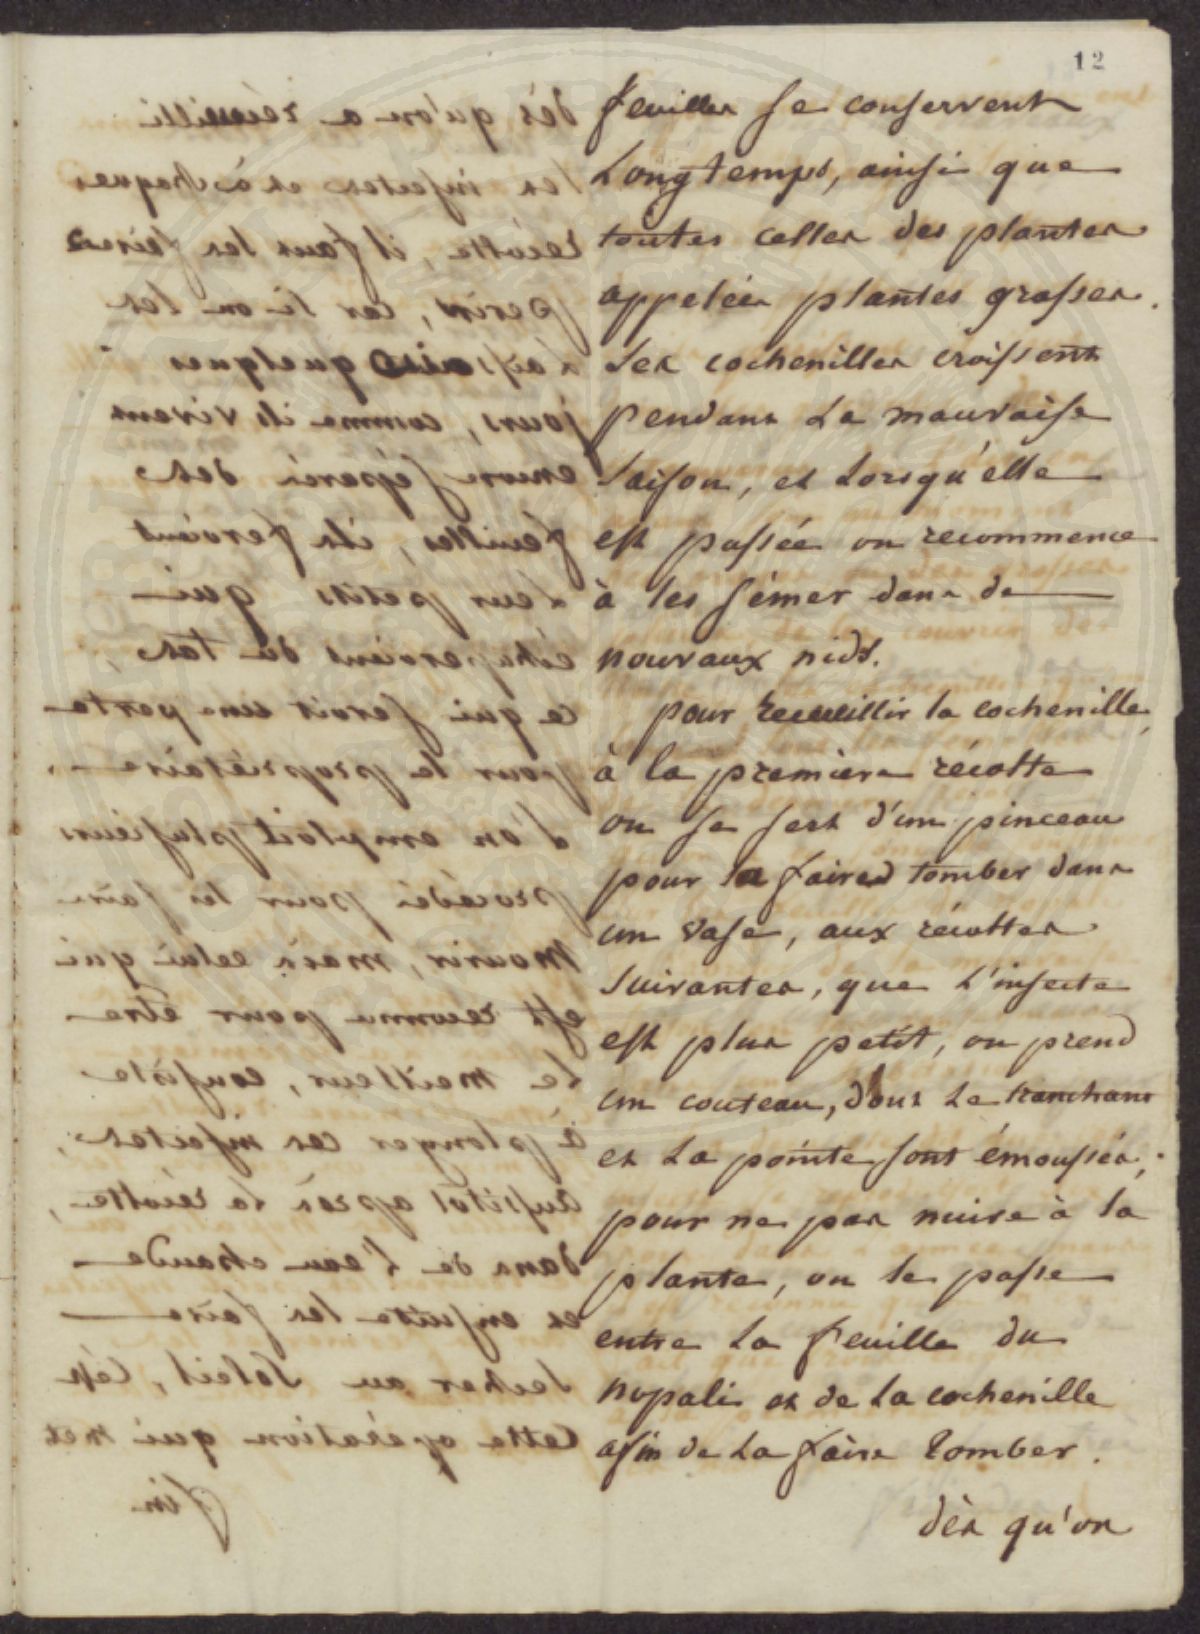 12
feuilles se conservent
Longtemps, ainsi que
toutes celles des plantes
appelées plantes grasses.
Les cochenilles croissent
pendant La mauvaise
Saison, et Lorsqu'elle
est passée on recommence
à les sémer dans de
nouvaux nids.
pour recueillir la cochenille,
à la premiere récolte
on se sert d'un pinceau
pour la faire tomber dans
un vase, aux récoltes
suivantes, que L'insecte
est plus petit, on prend
un couteau, dont Le tranchant
et La pointe sont émoussés;
pour ne pas nuire à la
plante, on le passe
entre La feuille du
nopalis et de La cochenille
afin de La faire tomber.
dès qu'on